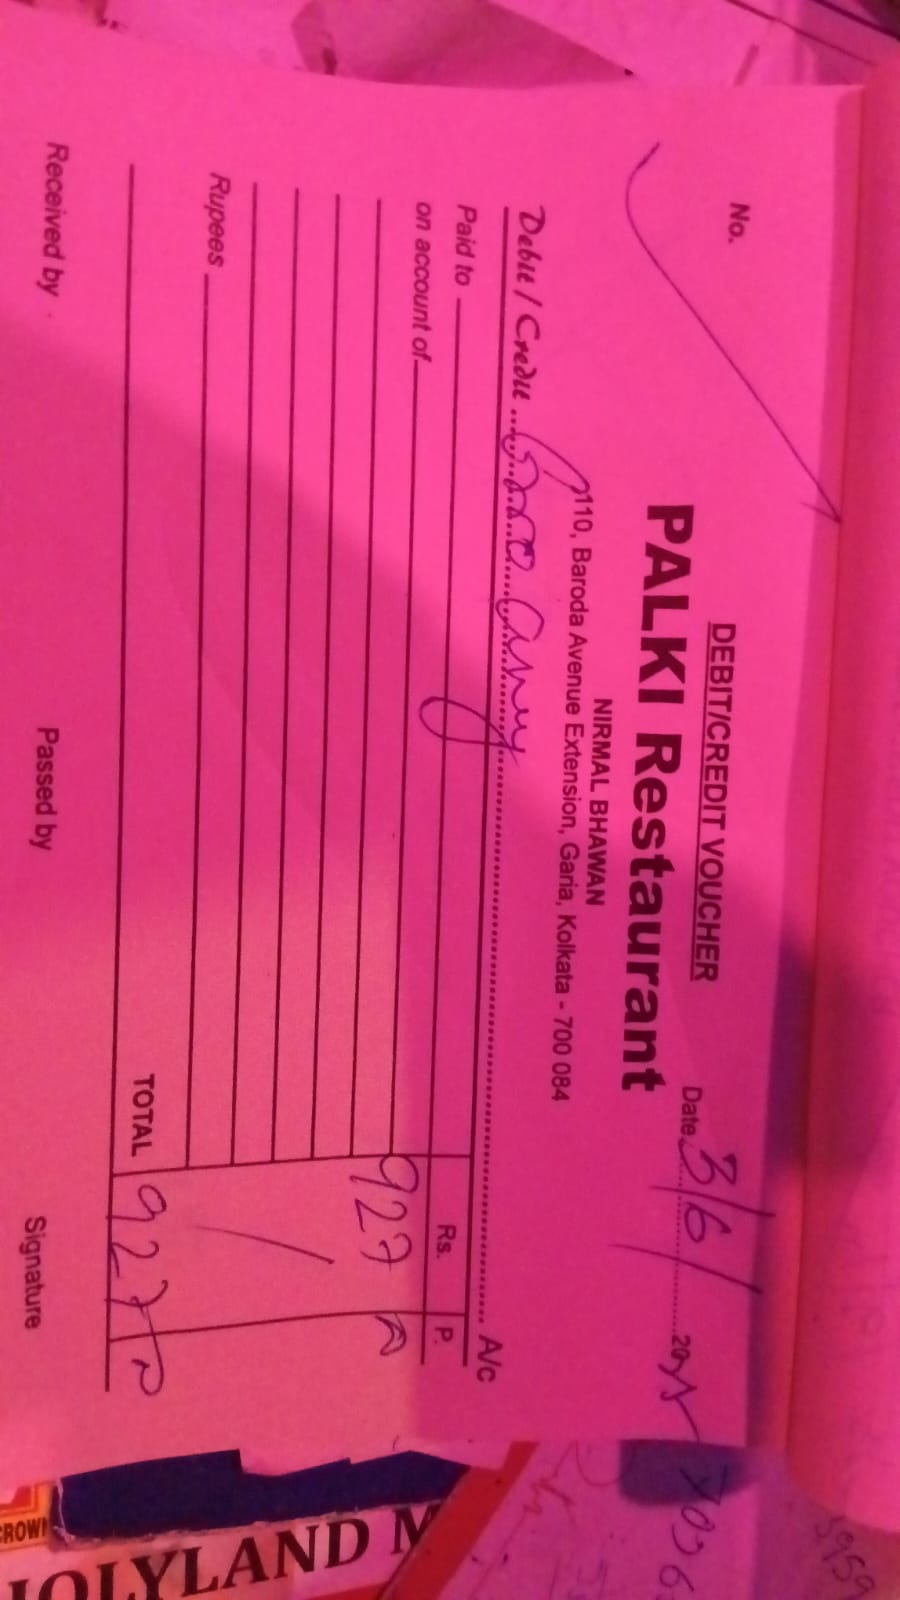 DEBIT/CREDIT VOUCHER
No.
Date 3/6/ 20
PALKI Restaurant
NIRMAL BHAWAN
110, Baroda Avenue Extension, Garia, Kolkata - 700 084
Debit / Credit A/c
Paid to
Rs. P.
on account of
927
Rupees
TOTAL 927
Received by Passed by Signature
CROWN
JOLYLAND M